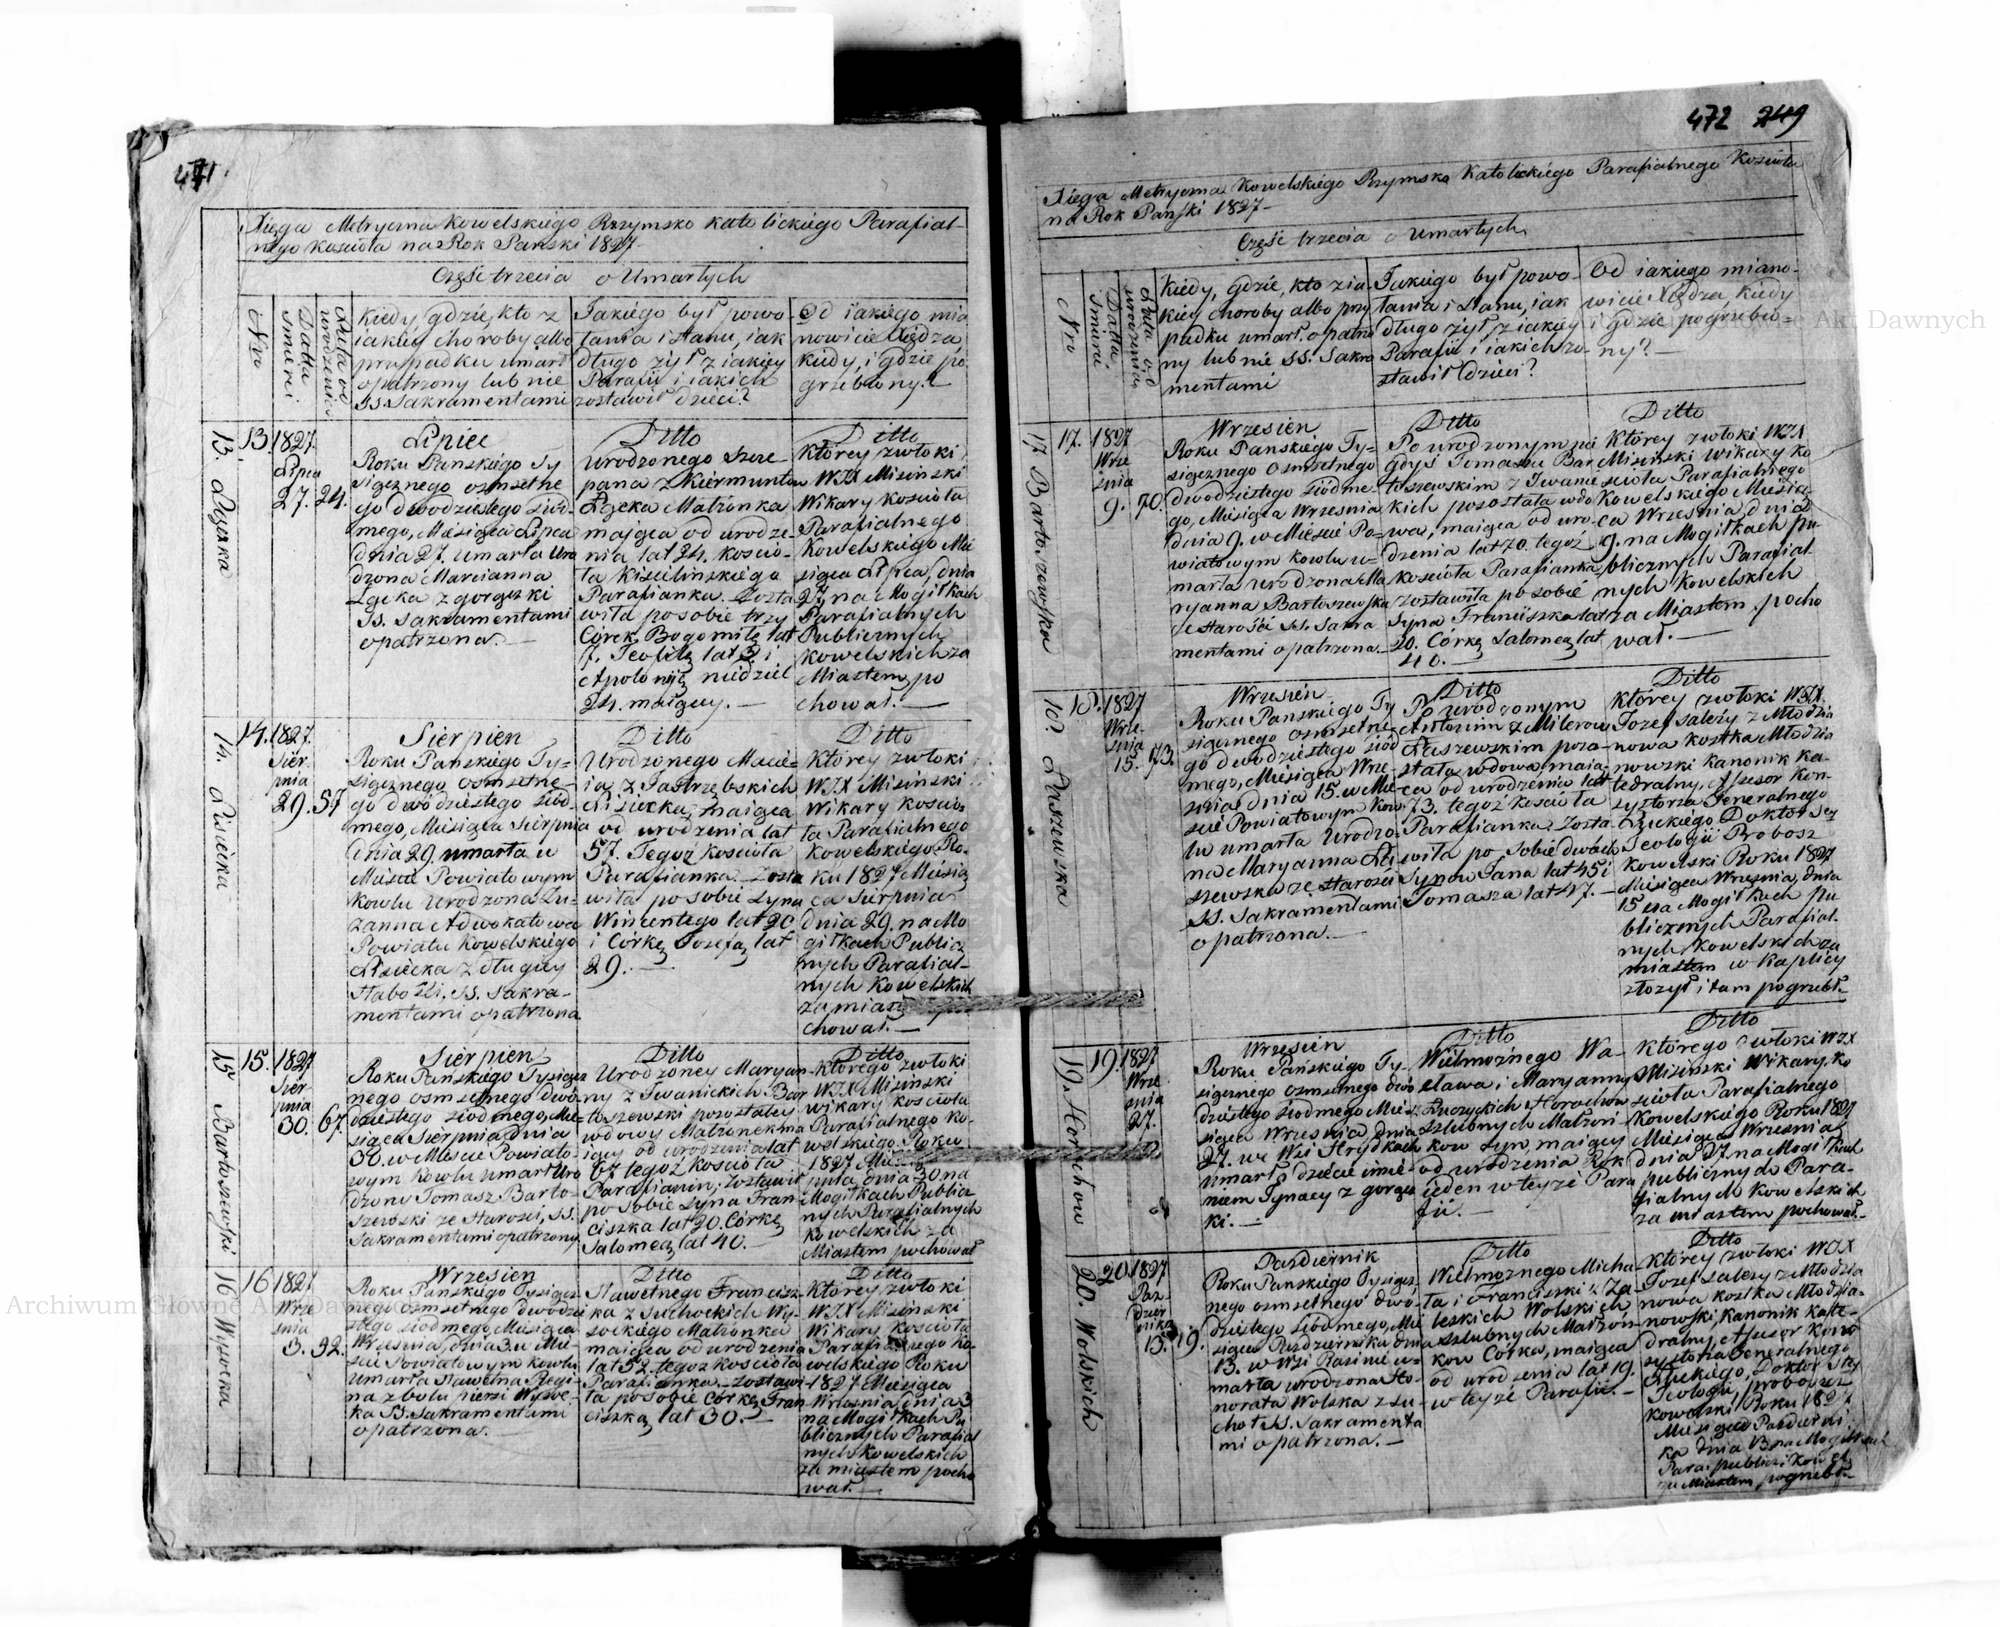 471.
Xięga Metryczna Kowelskiego Rzymsko katolickiego Parafial-
nego kosciola na Rok Panski 1827.
Część trzecia o Umarłych
Nro
Datta Smierci
Data od urodzenia
Kiedy, gdzie, kto z
iakiéy choroby albo
przypadku umarł
opatrzony lub nie
SS. Sakramentami
Jakiego był powo-
łania i stanu, iak
długo żył z iakiey
Parafii i iakich
zostawił dzieci?
Od iakiego mia
nowicie Xiędza,
kiedy, i gdzie po-
grzebiony?
13. Łęcka
13.
1827.
Lipca
27.
24.
Lipiec
Roku Panskiego Ty
siącznego osmsetne
go dwudziestego siód-
mego, Miesiąca Lipca
dnia 27. umarła Uro
dzona Marcianna
Łęcka z gorączki
SS. Sakramentami
opatrzona.
Ditto
Urodzonego Szcze-
pana z Kiermuntow
Łęcka Matrónka
maiąca od urodze-
nia lat 24. koscio-
ła Kisielinskiego
Parafianka. Zosta
wiła po sobie trzy
Córek Bogomiłę lat
7. Teofilę lat 3. i
Apolonię niedziel
24. maiący.
Ditto
Którey zwłoki
WJX Misiński
Wikary Kosciola
Parafialnego
Kowelskiego Mie
siąca Lipca, dnia
27. na Mogiłkach
Parafialnych
Publicznych
Kowelskich za
Miastem po
chował.
14. Lisiecka
14.
1827.
Sier-
pnia
29.
57
Sierpien
Roku Panskiego Ty-
siącznego osmsetne-
go dwudziestego siód-
mego, Miesiąca Sierpnia
dnia 29. umarła w
Miescie Powiatowym
Kowlu Urodzona Zu-
zanna Adwokatowa
Powiatu Kowelskiego
Lisiecka z długiey
słabości, SS. Sakra-
mentami opatrzona
Ditto
Urodzonego Macie-
ia z Jastrzębskich
Lisiecka, maiąca
od urodzenia lat
57. Tegoż kosciola
Parafianka. Zosta
wiła po sobie Syna
Wincentego lat 20
i Córkę Jozefę lat
29.
Ditto
Którey zwłoki
WJX Misiński
Wikary koscio
ła Parafialnego
Kowelskiego Ro-
ku 1827 Miesią
ca Sierpnia
dnia 29. na Mo
giłkach Publicz
nych Parafial-
nych Kowelskich
za mias
chował.
15 Bartoszewski
15.
1827
Sier-
pnia
30.
67.
Sierpien
Roku Panskiego Tysiącz
nego osmsetnego dwó-
dziestego siodmego, Mie-
siąca Sierpnia dnia
30. w Miescie Powiato-
wym Kowlu umarł Uro
dzony Tomasz Barto-
szewski ze starosci, SS.
Sakramentami opatrzony.
Ditto
Urodzoney Maryan-
ny z Iwanickich Bar
toszewski pozostałey
wdowy Matrónek ma
iący od urodzenia lat
67 tegoż kosciola
Parafianin; zostawił
po sobie Syna Fran
ciszka lat 20. Córkę
Salomeą lat 40.
Ditto
Którego zwłoki
WJX Misiński
wikary kosciola
Parafialnego Ko-
welskiego Roku
1827 Mie
pnia, dnia 30 na
Mogiłkach Publicz
nych Parafialnych
Kowelskich za
Miastem pochował
16 Wysocka
16
1827
Wrze
snia
3.
52.
Wrzesien
Roku Panskiego Tysiącz
nego osmsetnego dwódzie
stego siodmego, Miesiąca
Wrzesnia, dnia 3. w Mie-
scie Powiatowym Kowlu
umarła Sławetna Regi
na z bolu piersi Wysoc-
ka SS. Sakramentami
opatrzona.
Ditto
Sławetnego Francisz
ka z Suchockich Wy-
sockiego Matrónka
maiąca od urodzenia
lat 52. tegoż kosciola
Parafianka. Zostawi-
ła po sobie Córkę Fran
ciszkę lat 30.
Ditto
Którey zwłoki
WJX Misiński
Wikary kosciola
Parafialnego Ko-
welskiego Roku
1827 Miesiąca
Wrzesnia, dnia 3
na Mogiłkach Pu
blicznych Parafial
nych Kowelskich
za miastem pocho
wał.
472 249
Xięga Metryczna Kowelskiego Rzymsko Katolickiégo Parafialnego Kosciola
na Rok Panski 1827
Część trzecia o Umarłych
Nro
Datta Smierci
Datta od urodzenia
Kiedy, gdzie, kto z ia-
kiey choroby albo przy
padku umarł opatrzo
ny lub nie SS. Sakra
mentami
Jakiego był powo-
łania i stanu, iak
długo żył z iakiéy
Parafii i iakich zo-
stawił dzieci?
Od iakiego miano-
wicie Xiędza, kiedy
i gdzie pogrzebio-
ny?
17 Bartoszewska
17.
1827
Wrze
snia
9.
70.
Wrzesien
Roku Panskiego Ty-
siącznego osmsetnego
dwódziestego siódme-
go, Miesiąca Wrzesnia
dnia 9. w Miescie Po-
wiatowym Kowlu u-
marła urodzona Ma
ryanna Bartoszewska
ze starości SS. Sakra
mentami opatrzona.
Ditto
Po urodzonym nie
gdyś Tomaszu Bar
toszewskim z Iwanic
kich pozostała wdo
wa, maiąca od uro-
dzenia lat 70. tegoż
kosciola Parafianka,
zostawiła po sobie
Syna Franciszka lat
20. Córkę Salomeą lat
40.
Ditto
Którey zwłoki WJX
Misiński wikary ko
sciola Parafialnego
Kowelskiego Miesią-
ca Wrzesnia, dnia
9. na Mogiłkach pu-
blicznych Parafial-
nych Kowelskich
za Miastem pocho
wał.
18. Łuszewska
18.
1827
Wrze-
snia
15.
73.
Wrzesień
Roku Panskiego Ty
siącznego osmsetne-
go dwódziestego siód
mego, Miesiąca Wrze-
snia, dnia 15. w Mie-
scie Powiatowym Kow
lu umarła Urodzo-
na Maryanna Łu
szewska ze starosci
SS. Sakramentami
opatrzona.
Ditto
Po urodzonym
Antonim z Milerow
Łuszewskim pozo-
stała wdowa, maią-
ca od urodzenia lat
73. tegoż kosciola
Parafianka. Zosta-
wiła po sobie dwóch
Synów Jana lat 45 i
Tomasza lat 47.
Ditto
Którey zwłoki WJX
Jozef Salezy z Młodzia
nowa Kostka Młodzia
nowski Kanonik Ka-
tedralny, Assesor Kon-
systorza Jeneralnego
Łuckiego Doktor Sey
Teologii Probosz
Kowelski Roku 1827
Miesiąca Wrzesnia, dnia
15 na Mogiłkach pu
blicznych Parafial-
nych Kowelskich za
miastem w Kaplicy
złożył i tam pogrzebł.
19. Horochow
19.
1827
Wrze
snia
27.
Wrzesień
Roku Pańskiego Ty-
siącznego osmsetnego dwó
dziestego siodmego Mie-
siąca Wrzesnia dnia
27. we Wsi Hryszkach
umarł dziecie imie-
niem Jgnacy z gorącz
ki.
Ditto
Wielmożnego Wa-
cława i Maryanny
Łuczyckich Horochow
szlubnych Matroń-
kow Syn, maiący
od urodzenia Rok
ieden w teyże Para
fii.
Ditto
Którego zwłoki WJX
Misiński Wikary ko
sciola Parafialnego
Kowelskiego Roku 1827
Miesiąca Wrzesnia
dnia 27. na Mogiłkach
publicznych Para-
fialnych Kowelskich
za miastem pochował.
20. Wolskich
20.
1827
Paz-
dzier
nika
13.
19.
Pazdziernik
Roku Panskiego Tysiącz-
nego osmsetnego dwó-
dziestego siodmego, Mie
siąca Pazdziernika dnia
13. w Wsi Kasinie u-
marła urodzona Ho-
norata Wolska z su-
chot SS. Sakramenta
mi opatrzona.
Ditto
Wielmożnego Micha
ła i Franciszki z Za-
leskich Wolskich,
szlubnych Matron-
kow Córka, maiąca
od urodzenia lat 19.
w teyże Parafii.
Ditto
Którey zwłoki WJX
Jozef Salezy z Młodzia
nowa Kostka Młodzia-
nowski, Kanonik Kate-
dralny, Assesor Kon
systorza Jeneralnego
Łuckiego, Doktor Stey
Teologii, Proboszcz
Kowelski Roku 1827
Miesiąca Pazdzierni
ka dnia 13 na Mogiłkach
Paraf: publicz: Kowel:
za Miastem pogrzebł.
Archiwum Główne Akt Dawnych
Archiwum Główne Akt Dawnych